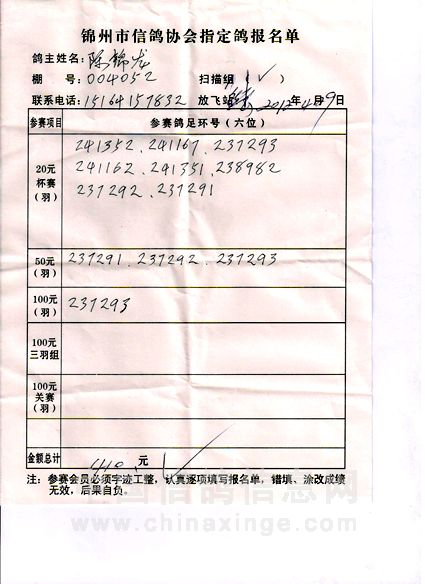 锦州市信鸽协会指定鸽报名单
鸽主姓名：陈锦龙
棚 号：004052 扫描组（ ✓ ）
联系电话：15164157832 放飞站 2012年4月9日
参赛项目 参赛鸽足环号（六位）
20元
杯赛
（羽）
241352、241167、237293
241162、241351、238982
237292、237291
50元
（羽）
237291、237292、237293
100元
（羽）
237293
100元
三羽组
100元
关赛
（羽）
金额总计 410 元
注：参赛会员必须字迹工整，认真逐项填写报名单，错填、涂改成绩
无效，后果自负。
中国信鸽信息网
www.chinaxinge.com